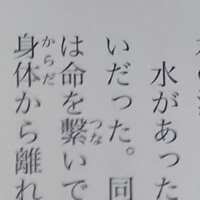 水があった
いだった。同
は命を繋いで
身体から離れ